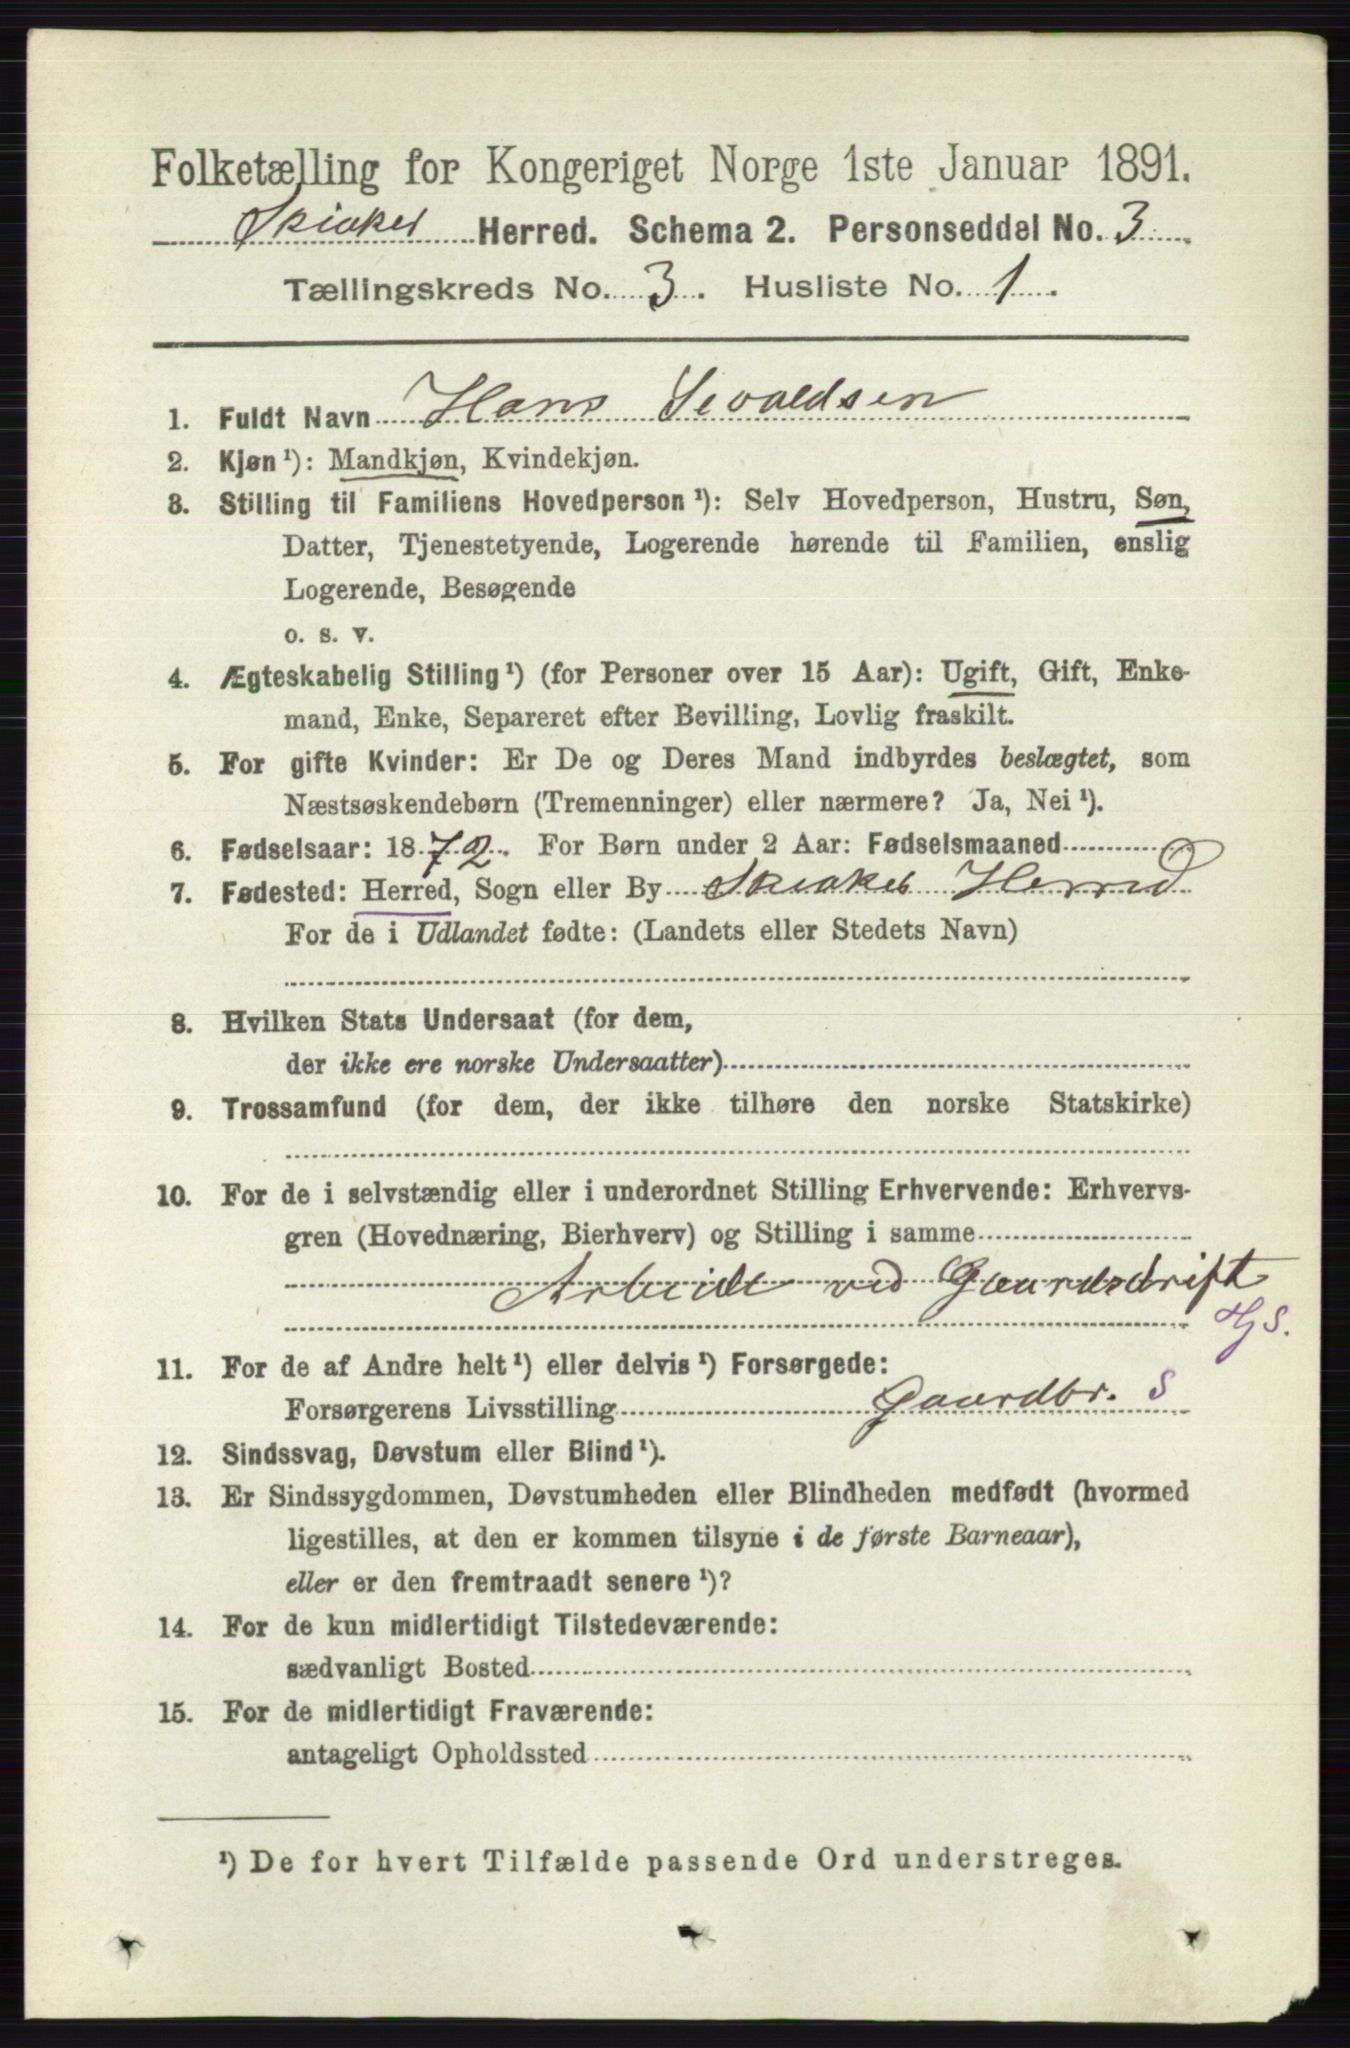 Folketælling for Kongeriget Norge 1ste Januar 1891.
Skiaker Herred. Schema 2. Personseddel No. 3
Tællingskreds No. 3. Husliste No. 1.
1. Fuldt Navn Hans Sivaldsen
2. Kjøn¹): Mandkjøn, Kvindekjøn.
3. Stilling til Familiens Hovedperson¹): Selv Hovedperson, Hustru, Søn,
Datter, Tjenestetyende, Logerende hørende til Familien, enslig
Logerende, Besøgende
o. s. v.
4. Ægteskabelig Stilling¹) (for Personer over 15 Aar): Ugift, Gift, Enke-
mand, Enke, Separeret efter Bevilling, Lovlig fraskilt.
5. For gifte Kvinder: Er De og Deres Mand indbyrdes beslægtet, som
Næstsøskendebørn (Tremenninger) eller nærmere? Ja, Nei¹).
6. Fødselsaar: 1872. For Børn under 2 Aar: Fødselsmaaned
7. Fødested: Herred, Sogn eller By Skiaker Herred
For de i Udlandet fødte: (Landets eller Stedets Navn)
8. Hvilken Stats Undersaat (for dem,
der ikke ere norske Undersaatter)
9. Trossamfund (for dem, der ikke tilhøre den norske Statskirke)
10. For de i selvstændig eller i underordnet Stilling Erhvervende: Erhvervs-
gren (Hovednæring, Bierhverv) og Stilling i samme
Arbeide ved Gaardsdrift
Hj S.
11. For de af Andre helt¹) eller delvis¹) Forsørgede:
Forsørgerens Livsstilling Gaardbr. S
12. Sindssvag, Døvstum eller Blind¹).
13. Er Sindssygdommen, Døvstumheden eller Blindheden medfødt (hvormed
ligestilles, at den er kommen tilsyne i de første Barneaar),
eller er den fremtraadt senere¹)?
14. For de kun midlertidigt Tilstedeværende:
sædvanligt Bosted
15. For de midlertidigt Fraværende:
antageligt Opholdssted
¹) De for hvert Tilfælde passende Ord understreges.